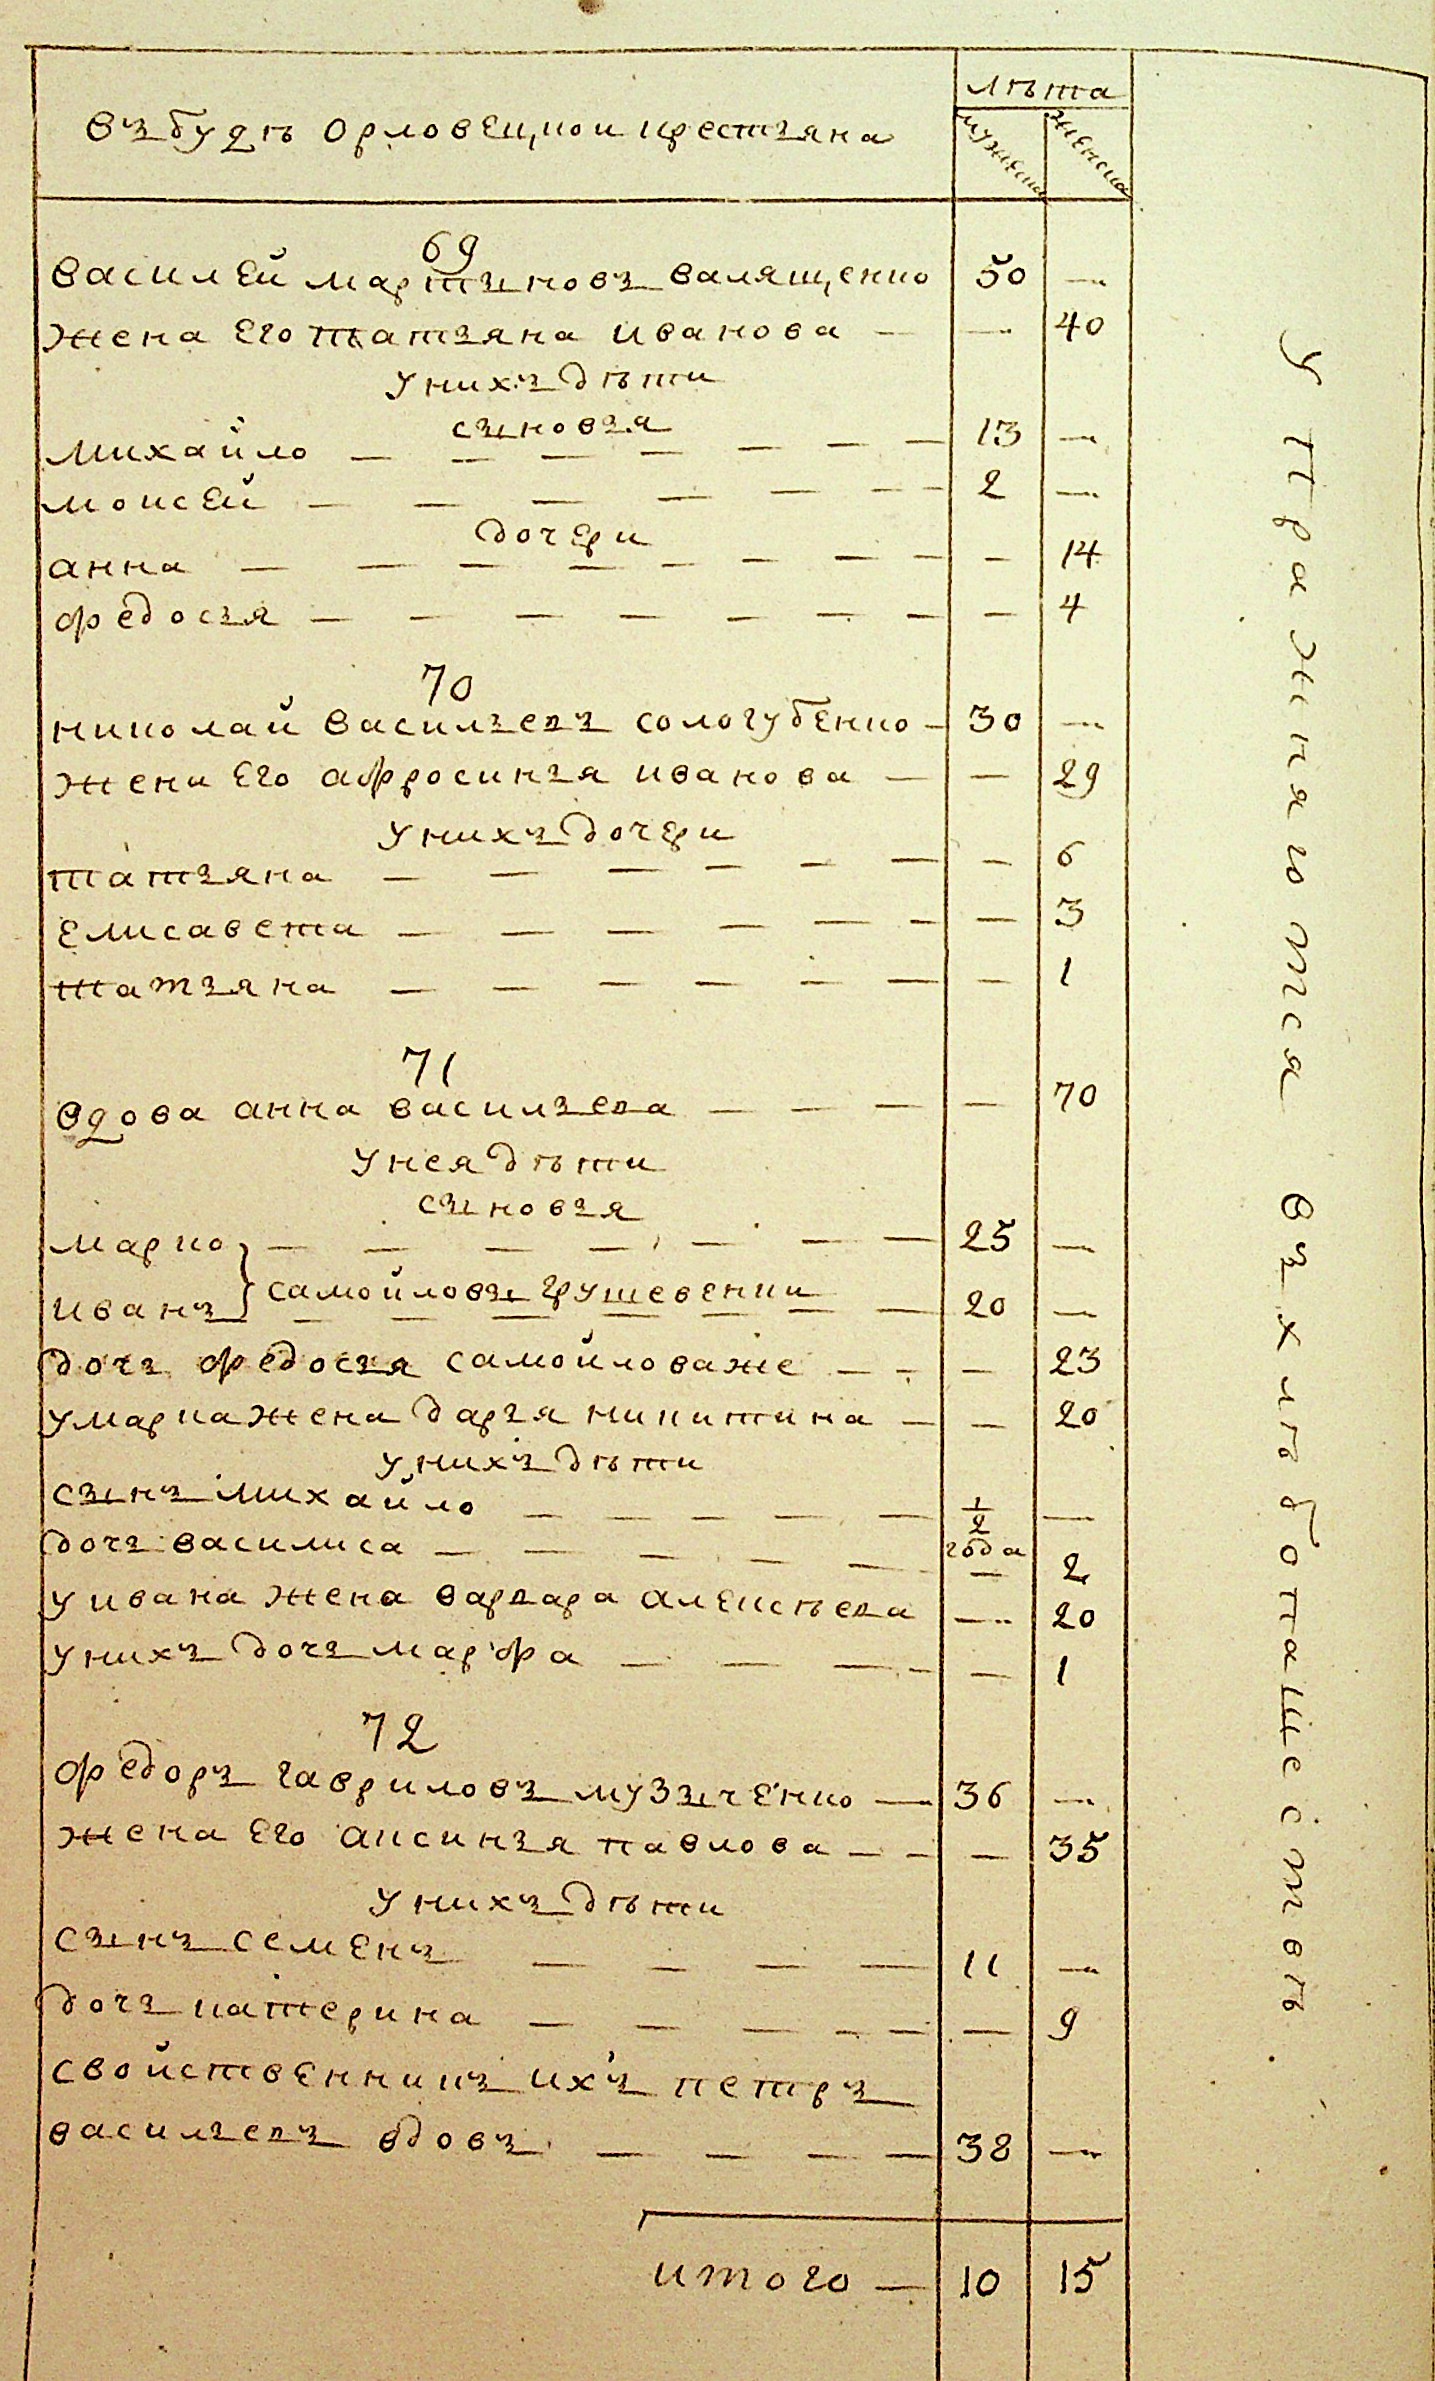 въ будѣ орловецкои крестьяна
лѣта
мужеска
женска
69
василей мартыновъ валященко 50 —
жена его татьяна иванова — — 40
у нихъ дѣти
сыновья
михайло — — — — — — 13 —
моисей — — — — — — 2 —
дочери
анна — — — — — — — — 14
федосья — — — — — — — — 4
70
николай васильевъ сологубенко — 30 —
жена его афросинья иванова — — 29
у нихъ дочери
татьяна — — — — — — — 6
елисавета — — — — — — — 3
татьяна — — — — — — — 1
71
вдова анна васильева — — — — 70
у нея дѣти
сыновья
марко — — — — — — — 25 —
иванъ } самойловы грушевенки — — — — — — — 20 —
дочь федосья самойлова же — — — 23
у марка жена дарья никитина — — 20
у нихъ дѣти
сынъ михайло — — — — — 1/2 года —
дочь василиса — — — — — — 2
у ивана жена варвара алексѣева — 20
у нихъ дочь марфа — — — — — 1
72
федоръ гавриловъ музыченко — 36 —
жена его аксинья павлова — — — 35
у нихъ дѣти
сынъ семенъ — — — — 11 —
дочь катерина — — — — — — 9
свойственникъ ихъ петръ
васильевъ вдовъ — — — — 38 —
итого — 10 15
упражняются въ хлѣбопашествѣ